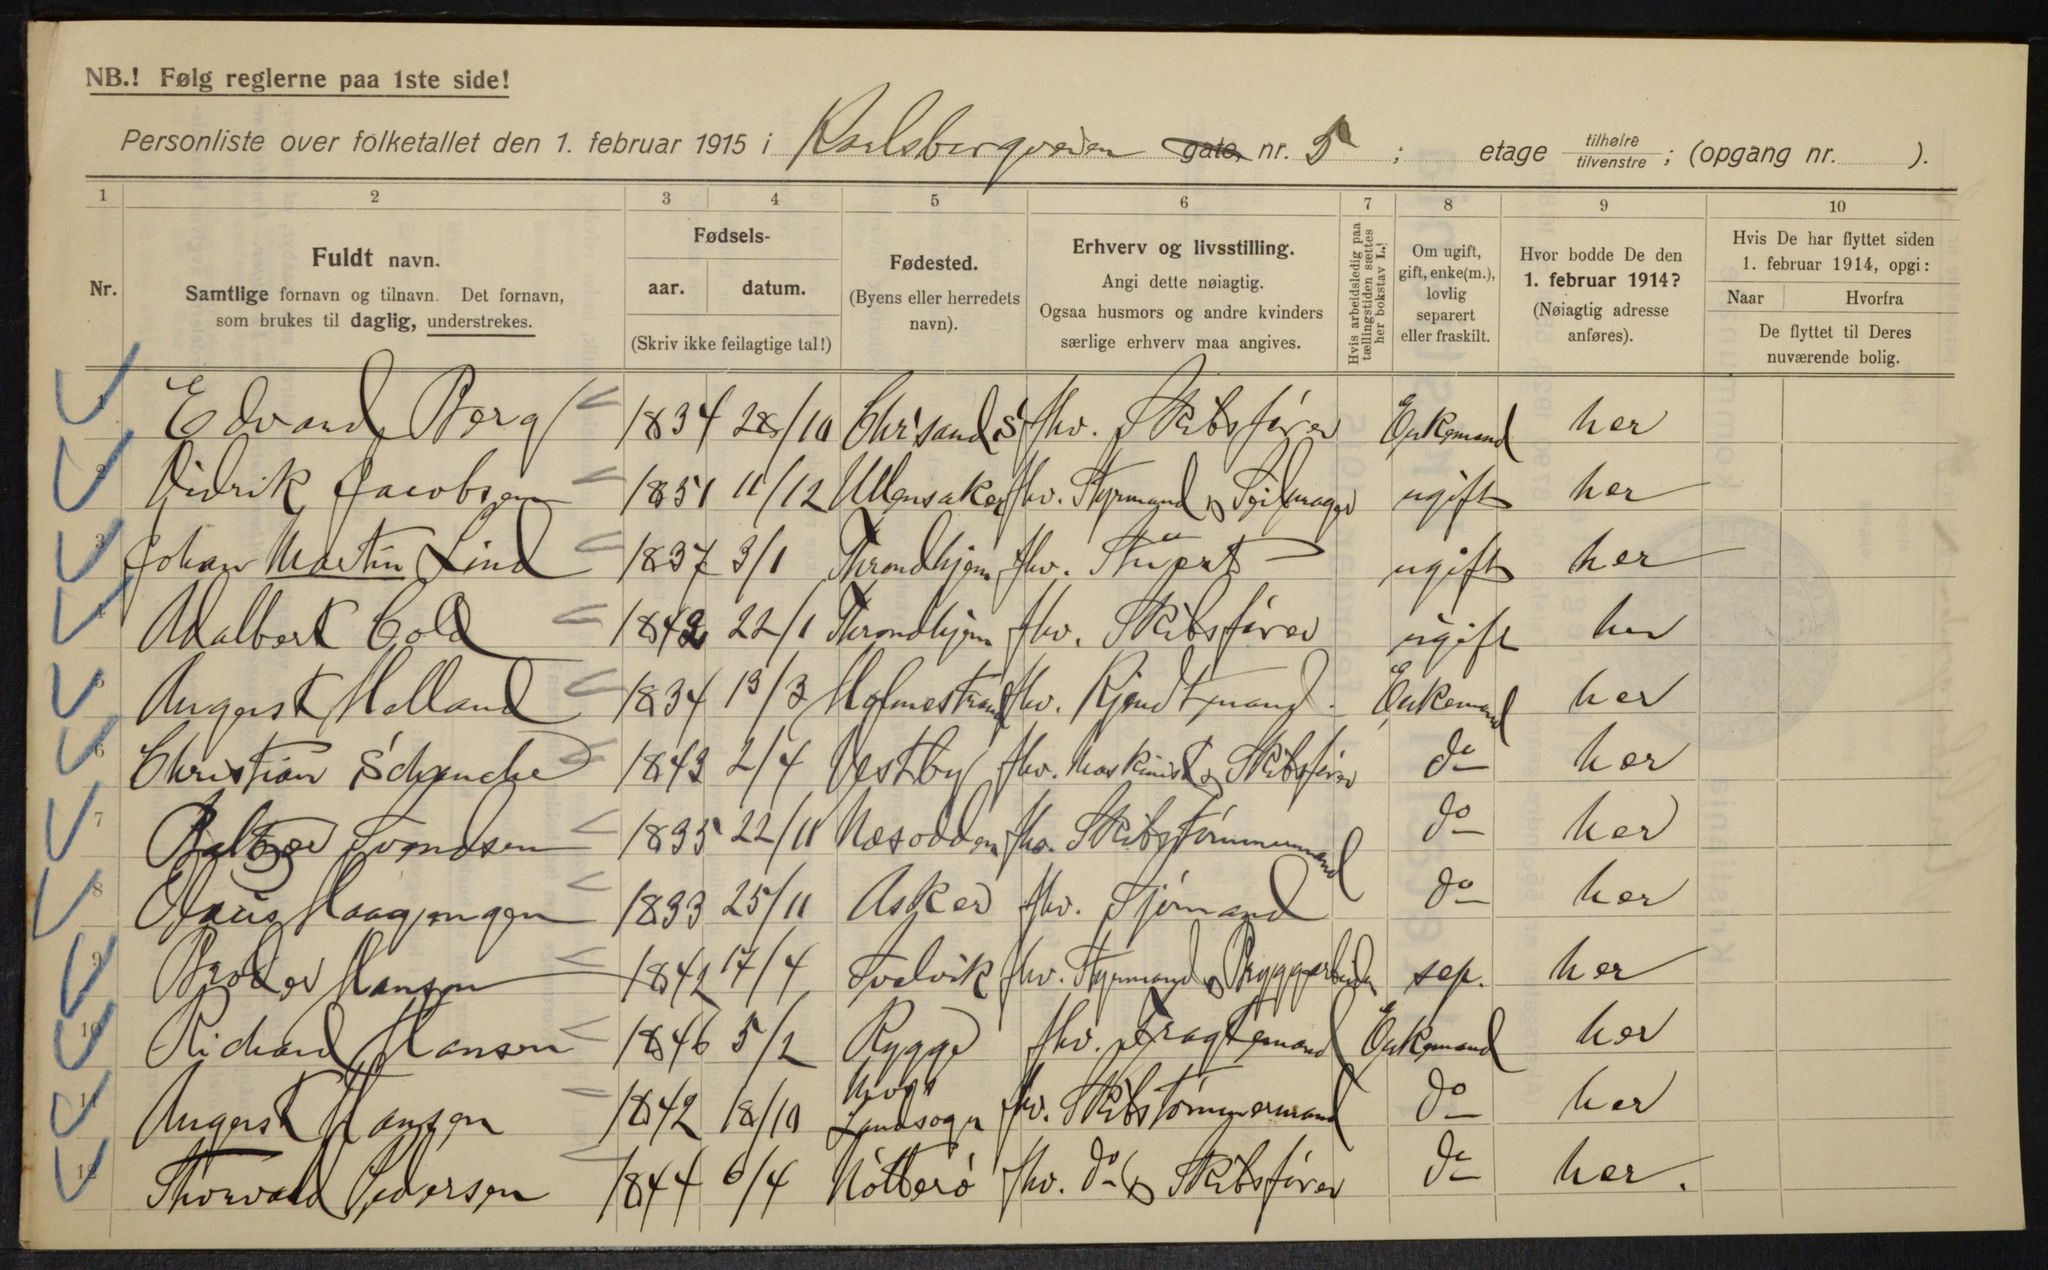 NB.! Følg reglerne paa 1ste side!
Personliste over folketallet den 1. februar 1915 i Karlsborgveien gate, nr. 5 ; etage tilhøire tilvenstre ; (opgang nr. ).
1 2 3 4 5 6 7 8 9 10
Nr.
Fuldt navn.
Samtlige fornavn og tilnavn. Det fornavn,
som brukes til daglig, understrekes.
Fødsels-
aar. datum.
(Skriv ikke feilagtige tal!)
Fødested.
(Byens eller herredets
navn).
Erhverv og livsstilling.
Angi dette nøiagtig.
Ogsaa husmors og andre kvinders
særlige erhverv maa angives.
Hvis arbeidsledig paa
tællingstiden sættes
her bokstav L.!
Om ugift,
gift, enke(m.),
lovlig
separert
eller fraskilt.
Hvor bodde De den
1. februar 1914?
(Nøiagtig adresse
anføres).
Hvis De har flyttet siden
1. februar 1914, opgi:
Naar Hvorfra
De flyttet til Deres
nuværende bolig.
1 Edvard Berg 1834 28/10 Chr'sand S fhv. Skibsfører Enkemand her
2 Didrik Jacobsen 1851 11/12 Ullensaker fhv. Styrmand & Seilmager ugift her
3 Johan Martin Lind 1837 3/1 Throndhjem fhv. Stuert ugift her
4 Adalbert Cold 1842 22/1 Throndhjem fhv. Skibsfører ugift her
5 August Holland 1834 13/3 Holmestrand fhv. Kjendtmand Enkemand her
6 Christian Schanche 1843 2/4 Vestby fhv. Maskinist & Skibsfører do her
7 Svendsen 1835 22/11 Næsodden fhv. Skibstømmermand do her
8 Haagensen 1833 25/11 Asker fhv. Sjømand do her
9 Broder Hansen 1842 17/4 Svelvik fhv. Styrmand & Bryggearbeider sep. her
10 Richard Hansen 1846 5/2 Rygge fhv. Fragtemand Enkemand her
11 August Hansen 1842 18/10 Landsogn fhv. Skibstømmermand do her
12 Thorvald Pedersen 1844 6/4 Nøtterø fhv. do & Skibsfører do her.